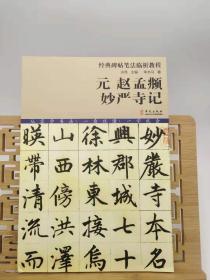 经典碑帖笔法临析教程
元 赵孟頫
妙严寺记
妙嚴寺本名
興郡城七十
徐林東接烏
山西傍洪澤
暎帶清流而